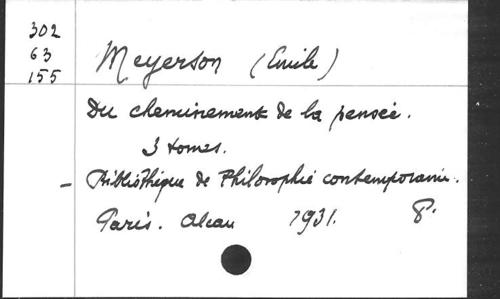 302
63
155
Meyerson (Emile)
Du cheminement de la pensée.
3 tomes.
- Bibliothèque de Philosophie contemporaine.
Paris. Alcan 1931. 8°.